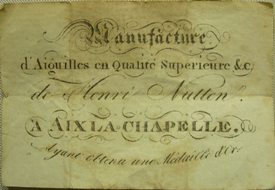 Manufacture
d'Aiguilles en Qualité Superieure &c.
de Henri Nütten
A AIX LA CHAPELLE.
Ayant obtenu une Médaille d'Or.